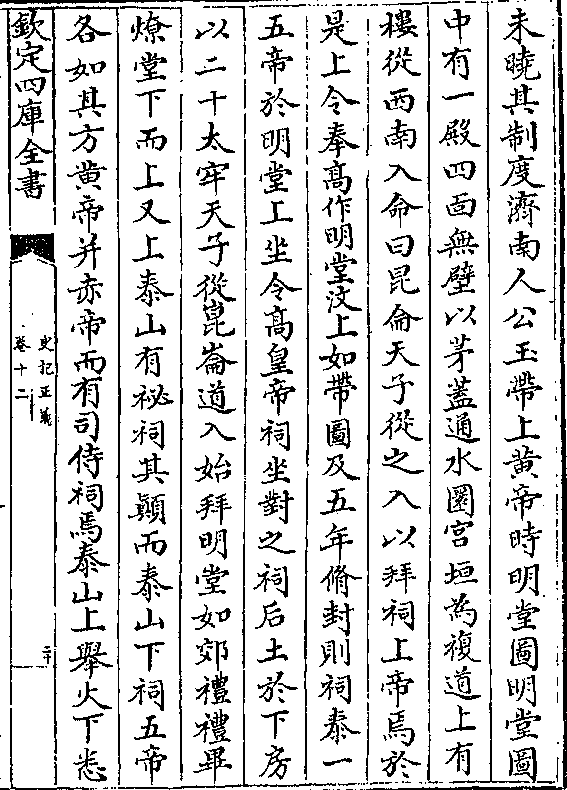 未曉其制度濟南人公玉帶上黄帝時明堂圖明堂圖
中有一殿四面無壁以茅蓋通水圜宫垣為複道上有
樓從西南入命曰昆侖天子從之入以拜祠上帝焉於
是上令奉髙作明堂汶上如帶圖及五年脩封則祠泰一
五帝於明堂上坐令髙皇帝祠坐對之祠后土於下房
以二十太牢天子從崑崙道入始拜明堂如郊禮禮畢
燎堂下而上又上泰山有祕祠其顚而泰山下祠五帝
各如其方黄帝并赤帝而有司侍祠焉泰山上舉火下悉
欽定四庫全書
史記正義
卷十二
二十